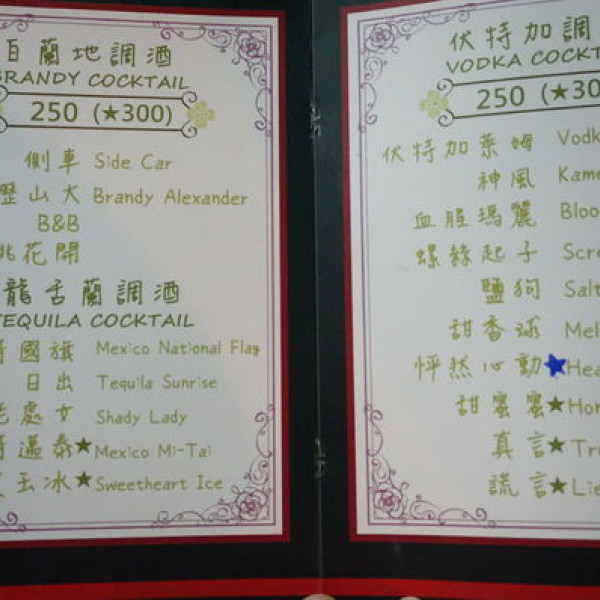 百蘭地調酒
BRANDY COCKTAIL
250 (★300)
側車 Side Car
歷山大 Brandy Alexander
B&B
桃花開
龍舌蘭調酒
TEQUILA COCKTAIL
哥國旗 Mexico National Flag
日出 Tequila Sunrise
老處女 Shady Lady
哥邁泰★Mexico Mi-Tai
玉冰★Sweetheart Ice
伏特加調
VODKA COCKT
250 (★30
伏特加萊姆 Vodk
神風 Kame
血腥瑪麗 Bloo
螺絲起子 Scre
鹽狗 Salt
甜香球 Mel
怦然心動★Hea
甜蜜蜜★Hon
真言★Tr
謊言★Lie